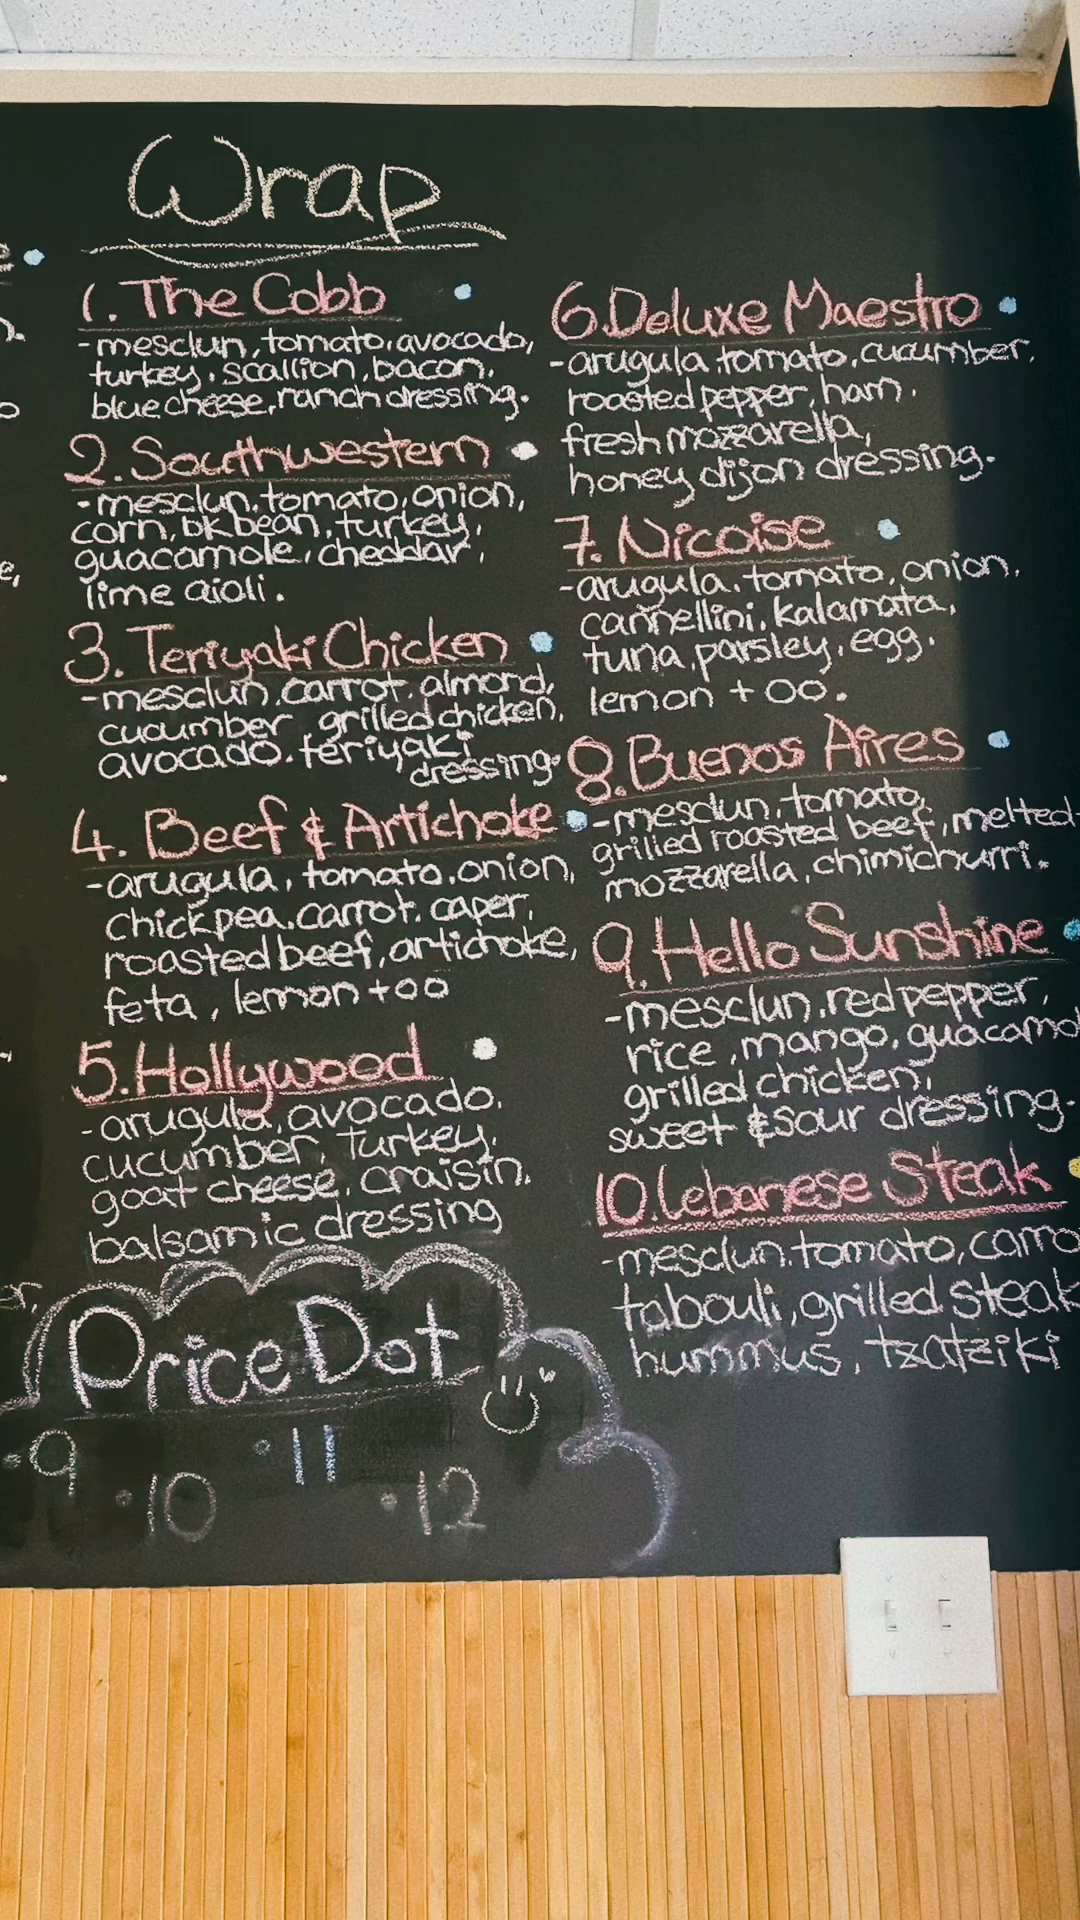 Wrap
1. The Cobb
-mesclun, tomato, avocado,
turkey, scallion, bacon,
blue cheese, ranch dressing.
2. Southwestern
-mesclun, tomato, onion,
corn, bk bean, turkey,
guacamole, cheddar,
lime aioli.
3. Teriyaki Chicken
-mesclun, carrot, almond,
cucumber, grilled chicken,
avocado, teriyaki
dressing.
4. Beef & Artichoke
-arugula, tomato, onion,
chick pea, carrot, caper,
roasted beef, artichoke,
feta, lemon + oo
5. Hollywood
-arugula, avocado,
cucumber, turkey,
goat cheese, craisin,
balsamic dressing
6. Deluxe Maestro
-arugula, tomato, cucumber,
roasted pepper, ham,
fresh mozzarella,
honey dijon dressing.
7. Nicoise
-arugula, tomato, onion,
cannellini, kalamata,
tuna, parsley, egg,
lemon + oo.
8. Buenos Aires
-mesclun, tomato,
grilled roasted beef, melted
mozzarella, chimichurri.
9. Hello Sunshine
-mesclun, red pepper,
rice, mango, guacamo
grilled chicken,
sweet & sour dressing.
10. Lebanese Steak
-mesclun, tomato, carro
tabouli, grilled steak
hummus, tzatziki
Price Dot
•9
•10
•11
•12